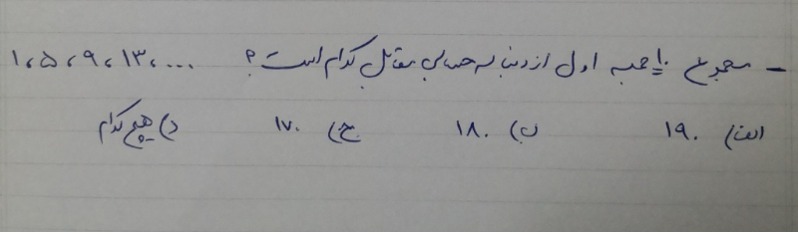 - مجموع ۱۰ جمله اول از دنباله حسابی مقابل کدام است؟ ۱، ۵، ۹، ۱۳، ...
الف) ۱۹۰ ب) ۱۸۰ ج) ۱۷۰ د) هیچ کدام